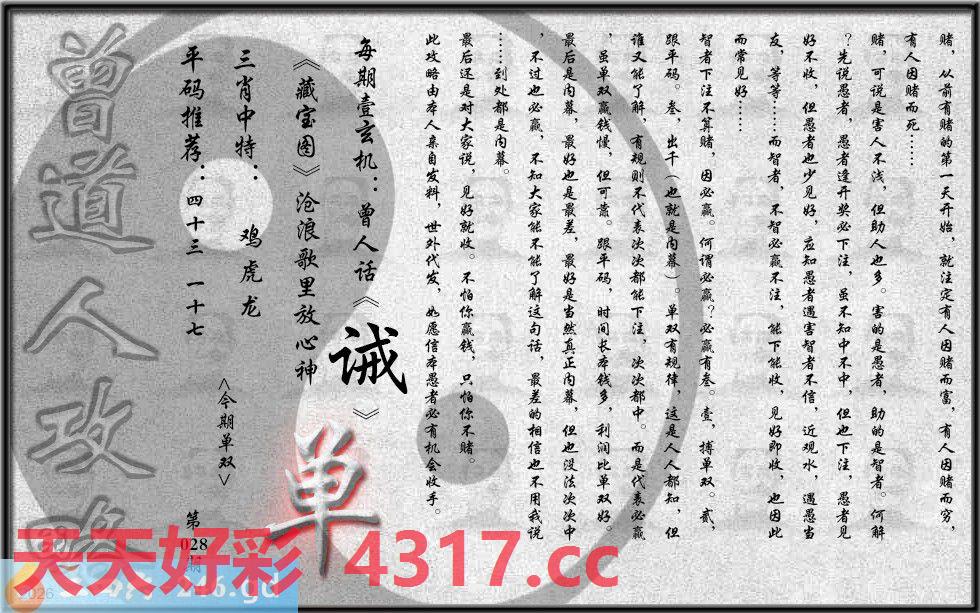 赌，从前有赌的第一天开始，就注定有人因赌而富，有人因赌而穷，
有人因赌而死……
赌，可说是害人不浅，但助人也多。害的是愚者，助的是智者。何解
？先说愚者，愚者逢开奖必下注，虽不知中不中，但也下注，愚者见
好不收，但愚者也少见好，应知愚者遇害智者不信，近观水，遇愚当
友，等等……而智者，不智必赢不注，能下能收，见好即收，也因此
而常见好……
智者下注不算赌，因必赢。何谓必赢？必赢有叁。壹，搏单双。贰，
跟平码。叁，出千（也就是内幕）。单双有规律，这是人人都知，但
谁又能了解，有规则不代表次次都能下注，次次都中。而是代表必赢
，虽单双赢钱慢，但可靠。跟平码，时间长本钱多，利润比单双好。
最后是内幕，最好也是最差，最好是当然真正内幕，但也没法次次中
，不过也必赢，不知大家能不能了解这句话，最差的相信也不用我说
……到处都是内幕。
最后还是对大家说，见好就收。不怕你赢钱，只怕你不赌。
此攻略由本人亲自发料，世外代发，如愿信本愚者必有机会收手。
每期壹玄机：曾人话《诫》
《藏宝图》沧浪歌里放心神
单
三肖中特：鸡虎龙
平码推荐：四十三 一十七
<今期单双>
第
028
期
曾道人攻略
天天好彩 4317.cc
2026